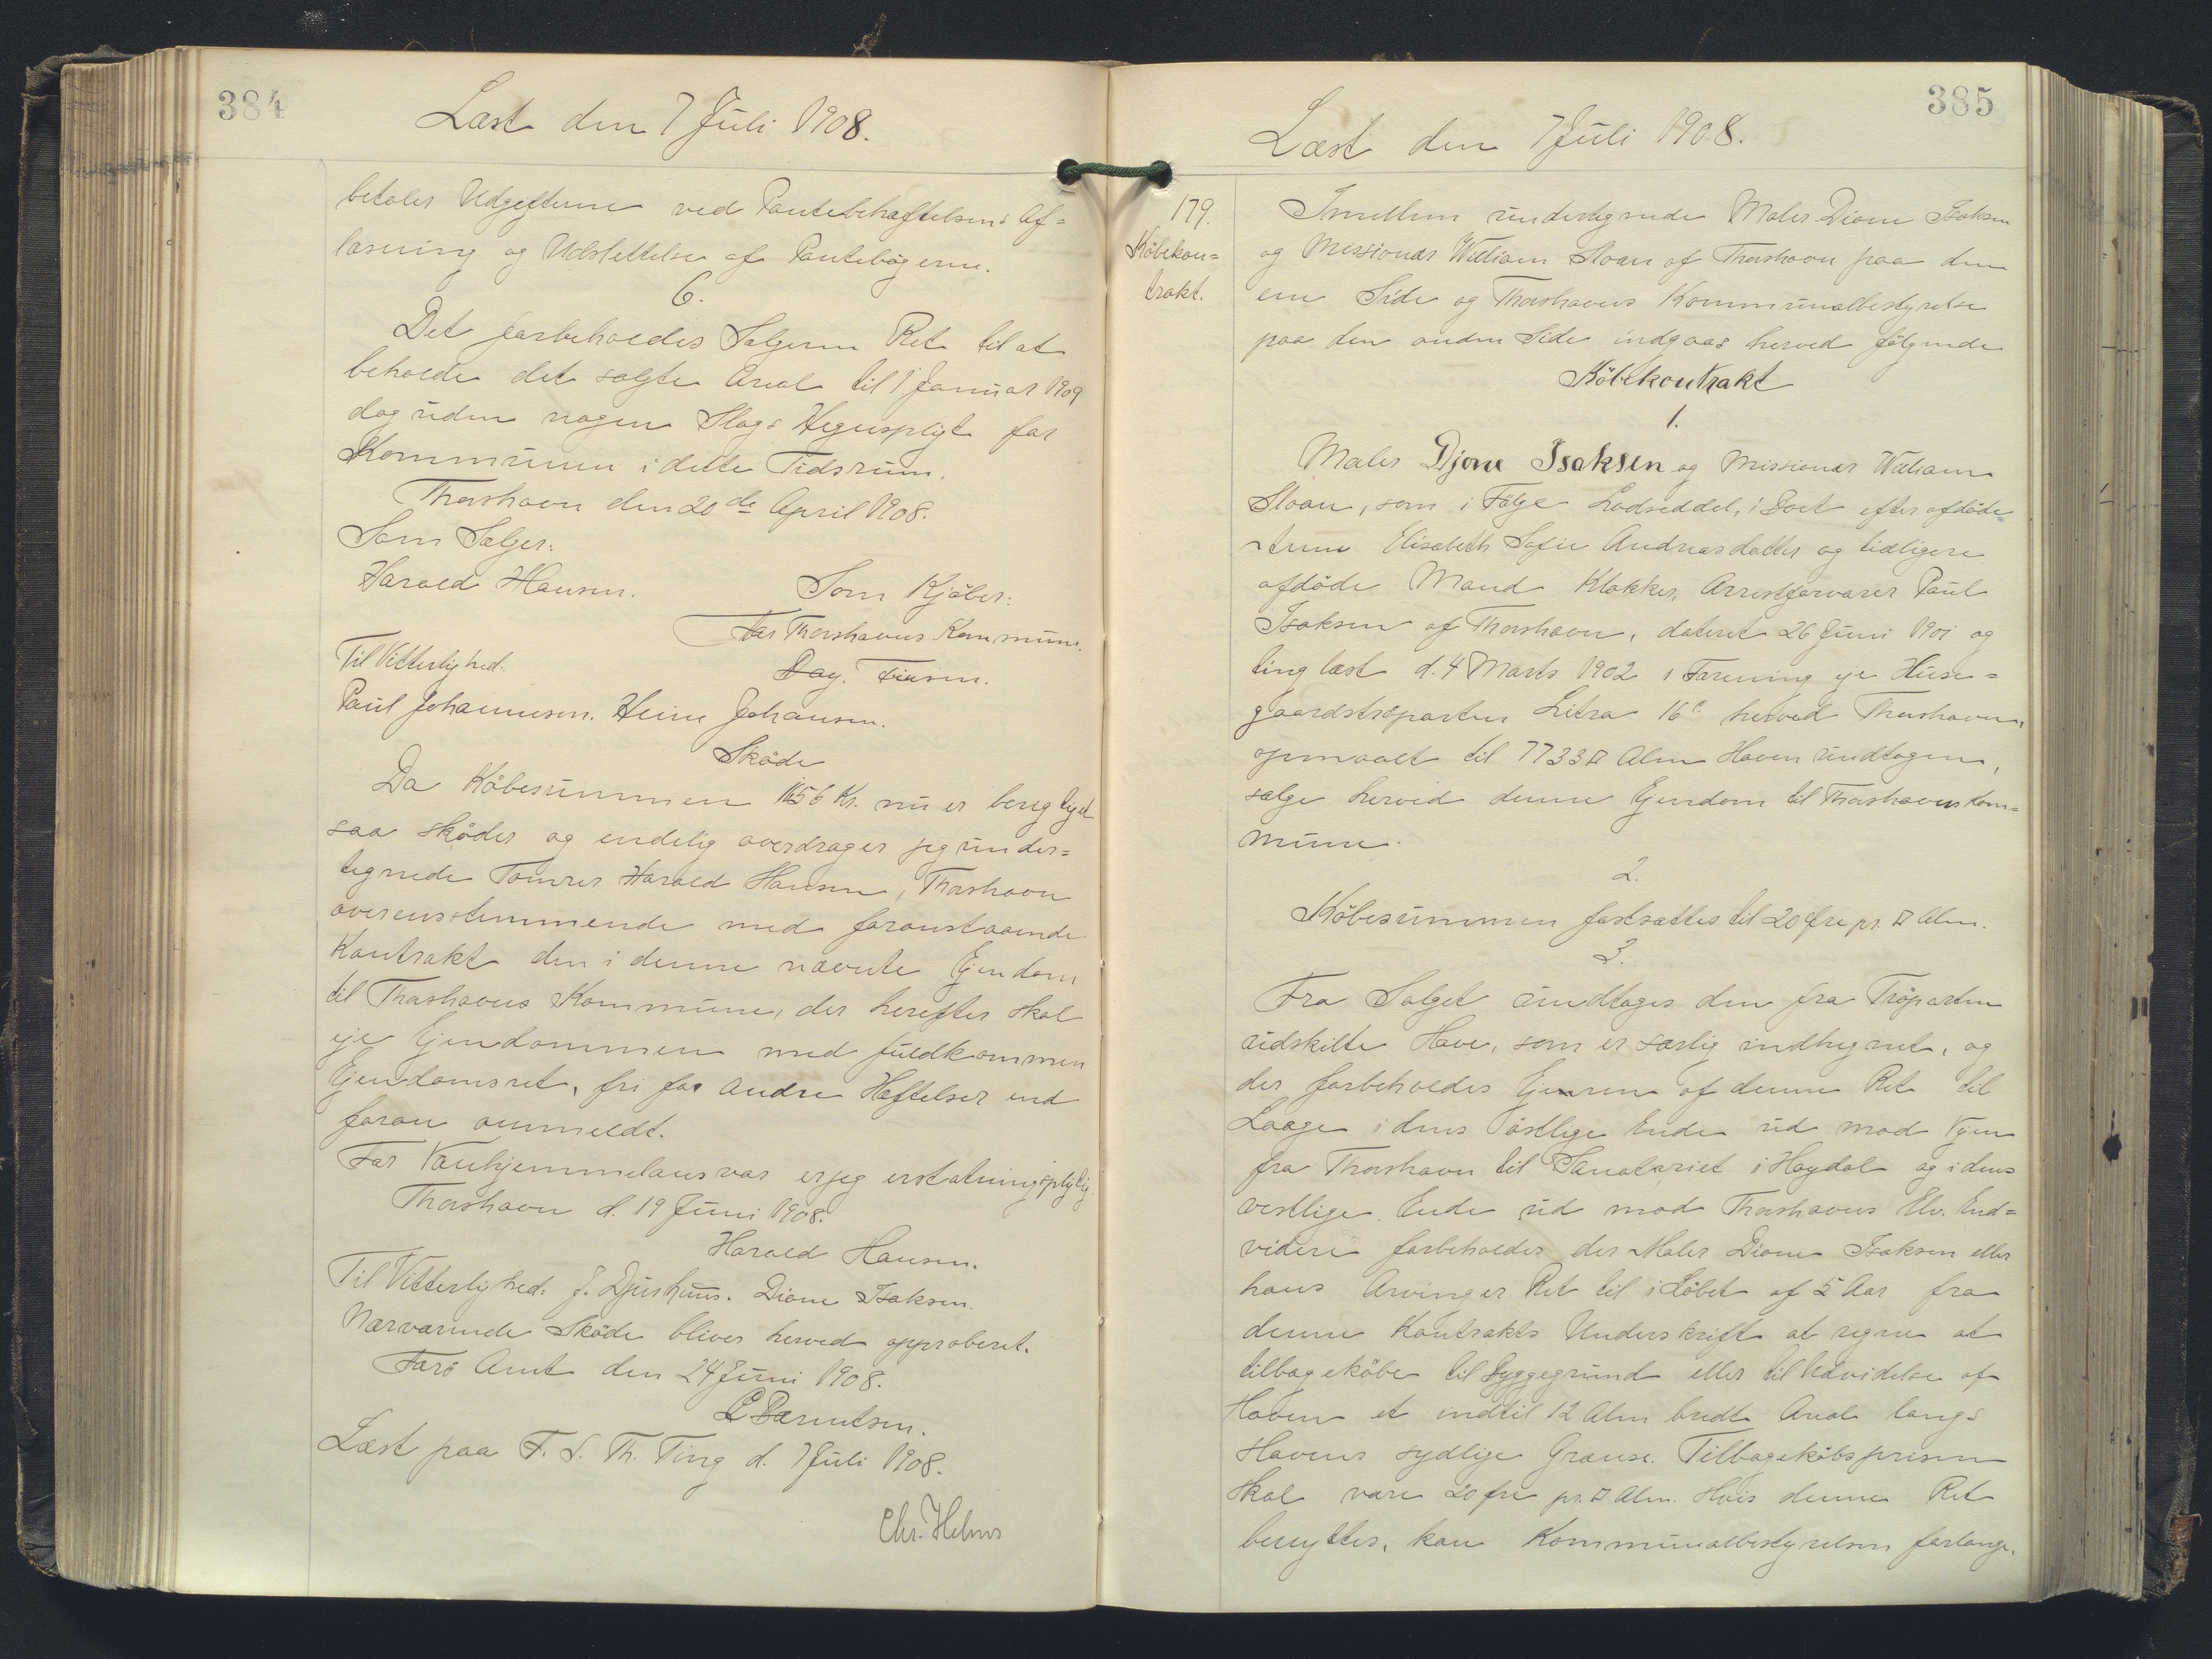 384
Læst den 7 Juli 1908.
betaler Udgifterne ved Pantebehæftelsens Af=
læsning og Udslettelse af Pantebøgerne.
6.
Det forbeholdes Sælgeren Ret til at
beholde det solgte Areal til 1 Januar 1909
dog uden nogen Slags Hegnspligt for
Kommunen i dette Tidsrum.
Thorshavn den 20de April 1908.
Som Sælger:
Harald Hansen.
Som Kjøber:
For Thorshavns Kommune.
Til Vitterlighed.
Paul Johannesen. Heine Johansen.
Skøde
Da Købesummen 1156 Kr. nu er berigtiget
saa skøder og endelig overdrager jeg under=
tegnede Tømrer Harald Hansen, Thorshavn
overensstemmende med foranstaaende
Kontrakt den i denne nævnte Ejendom
til Thorshavns Kommune, der herefter skal
eje Ejendommen med fuldkommen
Ejendomsret, fri for Andre Hæftelser end
foran anmeldt.
For Vanhjemmelansvar er jeg erstatningspligtig.
Thorshavn d. 19 Juni 1908.
Harald Hansen.
Til Vitterlighed: J. Djurhuus. Dione Isaksen.
Nærværende Skøde bliver herved approberet.
Færø Amt den 24 Juni 1908.
C Bærentsen.
Læst paa F. S. Th. Ting d. 7 Juli 1908.
Chr. Helms
385
Læst den 7 Juli 1908.
179.
Købekon=
trakt.
Imellem undertegnede Maler Dione Isaksen
og Missionær William Sloan af Thorshavn paa den
ene Side og Thorshavns Kommunalbestyrelse
paa den anden Side indgaas herved følgende
Købekontrakt
1.
Maler Djone Isaksen og Missionær William
Sloan, som i Følge Lodseddel, i Boet efter afdøde
Enne Elisabeth Sofie Andreasdatter og tidligere
afdøde Mand Klokker, Arrestforvarer Paul
Isaksen af Thorshavn, dateret 26 Juni 1901 og
tinglæst d. 4 Marts 1902 i Forening eje Huse=
gaardstrøparten Litra 16c herved Thorshavn,
opmaalt til 7733 □ Alen Haven undtagen,
sælge herved denne Ejendom til Thorshavns Kom=
mune.
2.
Købesummen fastsættes til 20 Øre pr. □ Alen.
3.
Fra Salget undtages den fra Trøparten
udskilte Have, som er særlig indhegnet, og
der forbeholdes Ejeren af denne Ret til
Laage i dens østlige Ende ud mod Vejen
fra Thorshavn til Sanatoriet i Hoydal og i dens
vestlige Ende ud mod Thorshavns Elv. End=
videre forbeholdes der Maler Dione Isaksen eller
hans Arvinger Ret til i Løbet af 5 Aar fra
denne Kontrakts Underskrift at regne at
tilbagekøbe til Byggegrund eller til Udvidelse af
Haven et indtil 12 Alen bredt Areal langs
Havens sydlige Grænse. Tilbagekøbsprisen
skal være 20 Øre pr. □ Alen. Hvis denne Ret
benyttes, kan Kommunalbestyrelsen forlange,